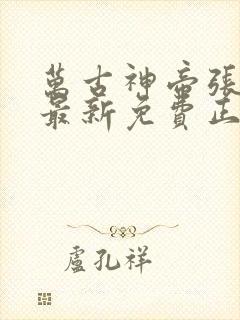 萬古神帝張
最新免費正
盧孔祥